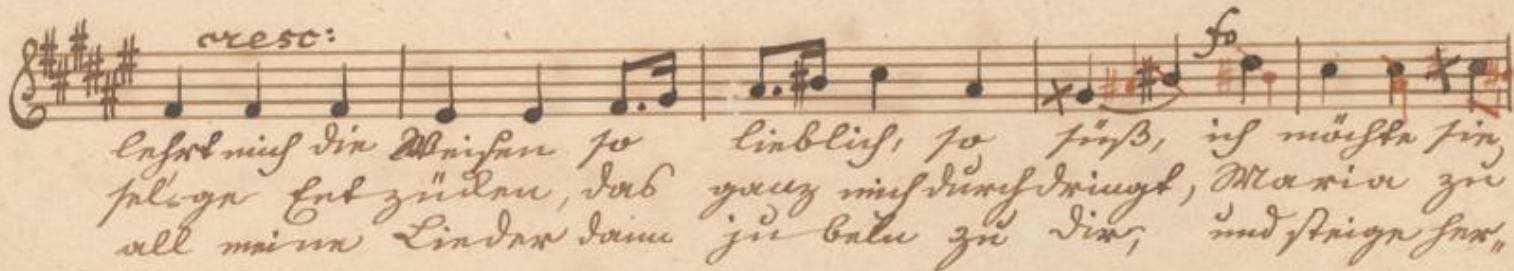 cresc:
fo
lehrt mich die Weisen so lieblich, so süß, ich möchte sie
sel'ge Entzücken, das ganz mich durchdringt, Maria zu
all meine Lieder dann jubeln zu dir, und steige her„